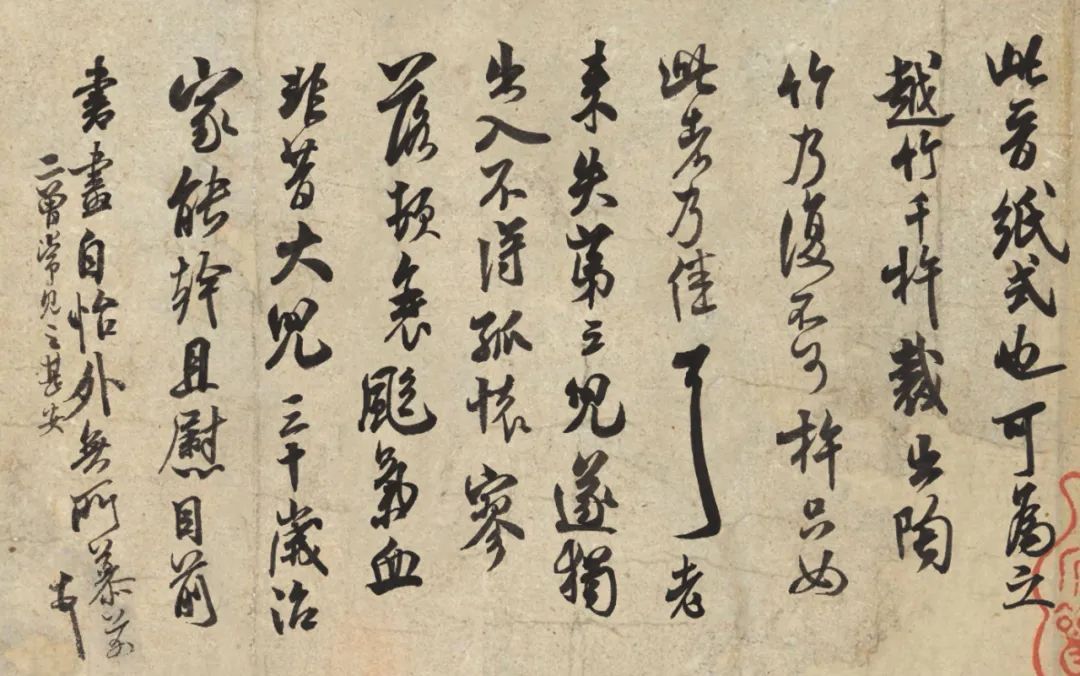 此晉紙式也可為之
越竹千杵裁出陶
竹乃復不可杵只如
此者乃佳耳老
來失第三兒遂獨
出入不得孤懷寥
落頓衰颯氣血
非昔大兒三十歲治
家能幹且慰目前
書畫自怡外無所慕芾
二曾常見之甚安
芾